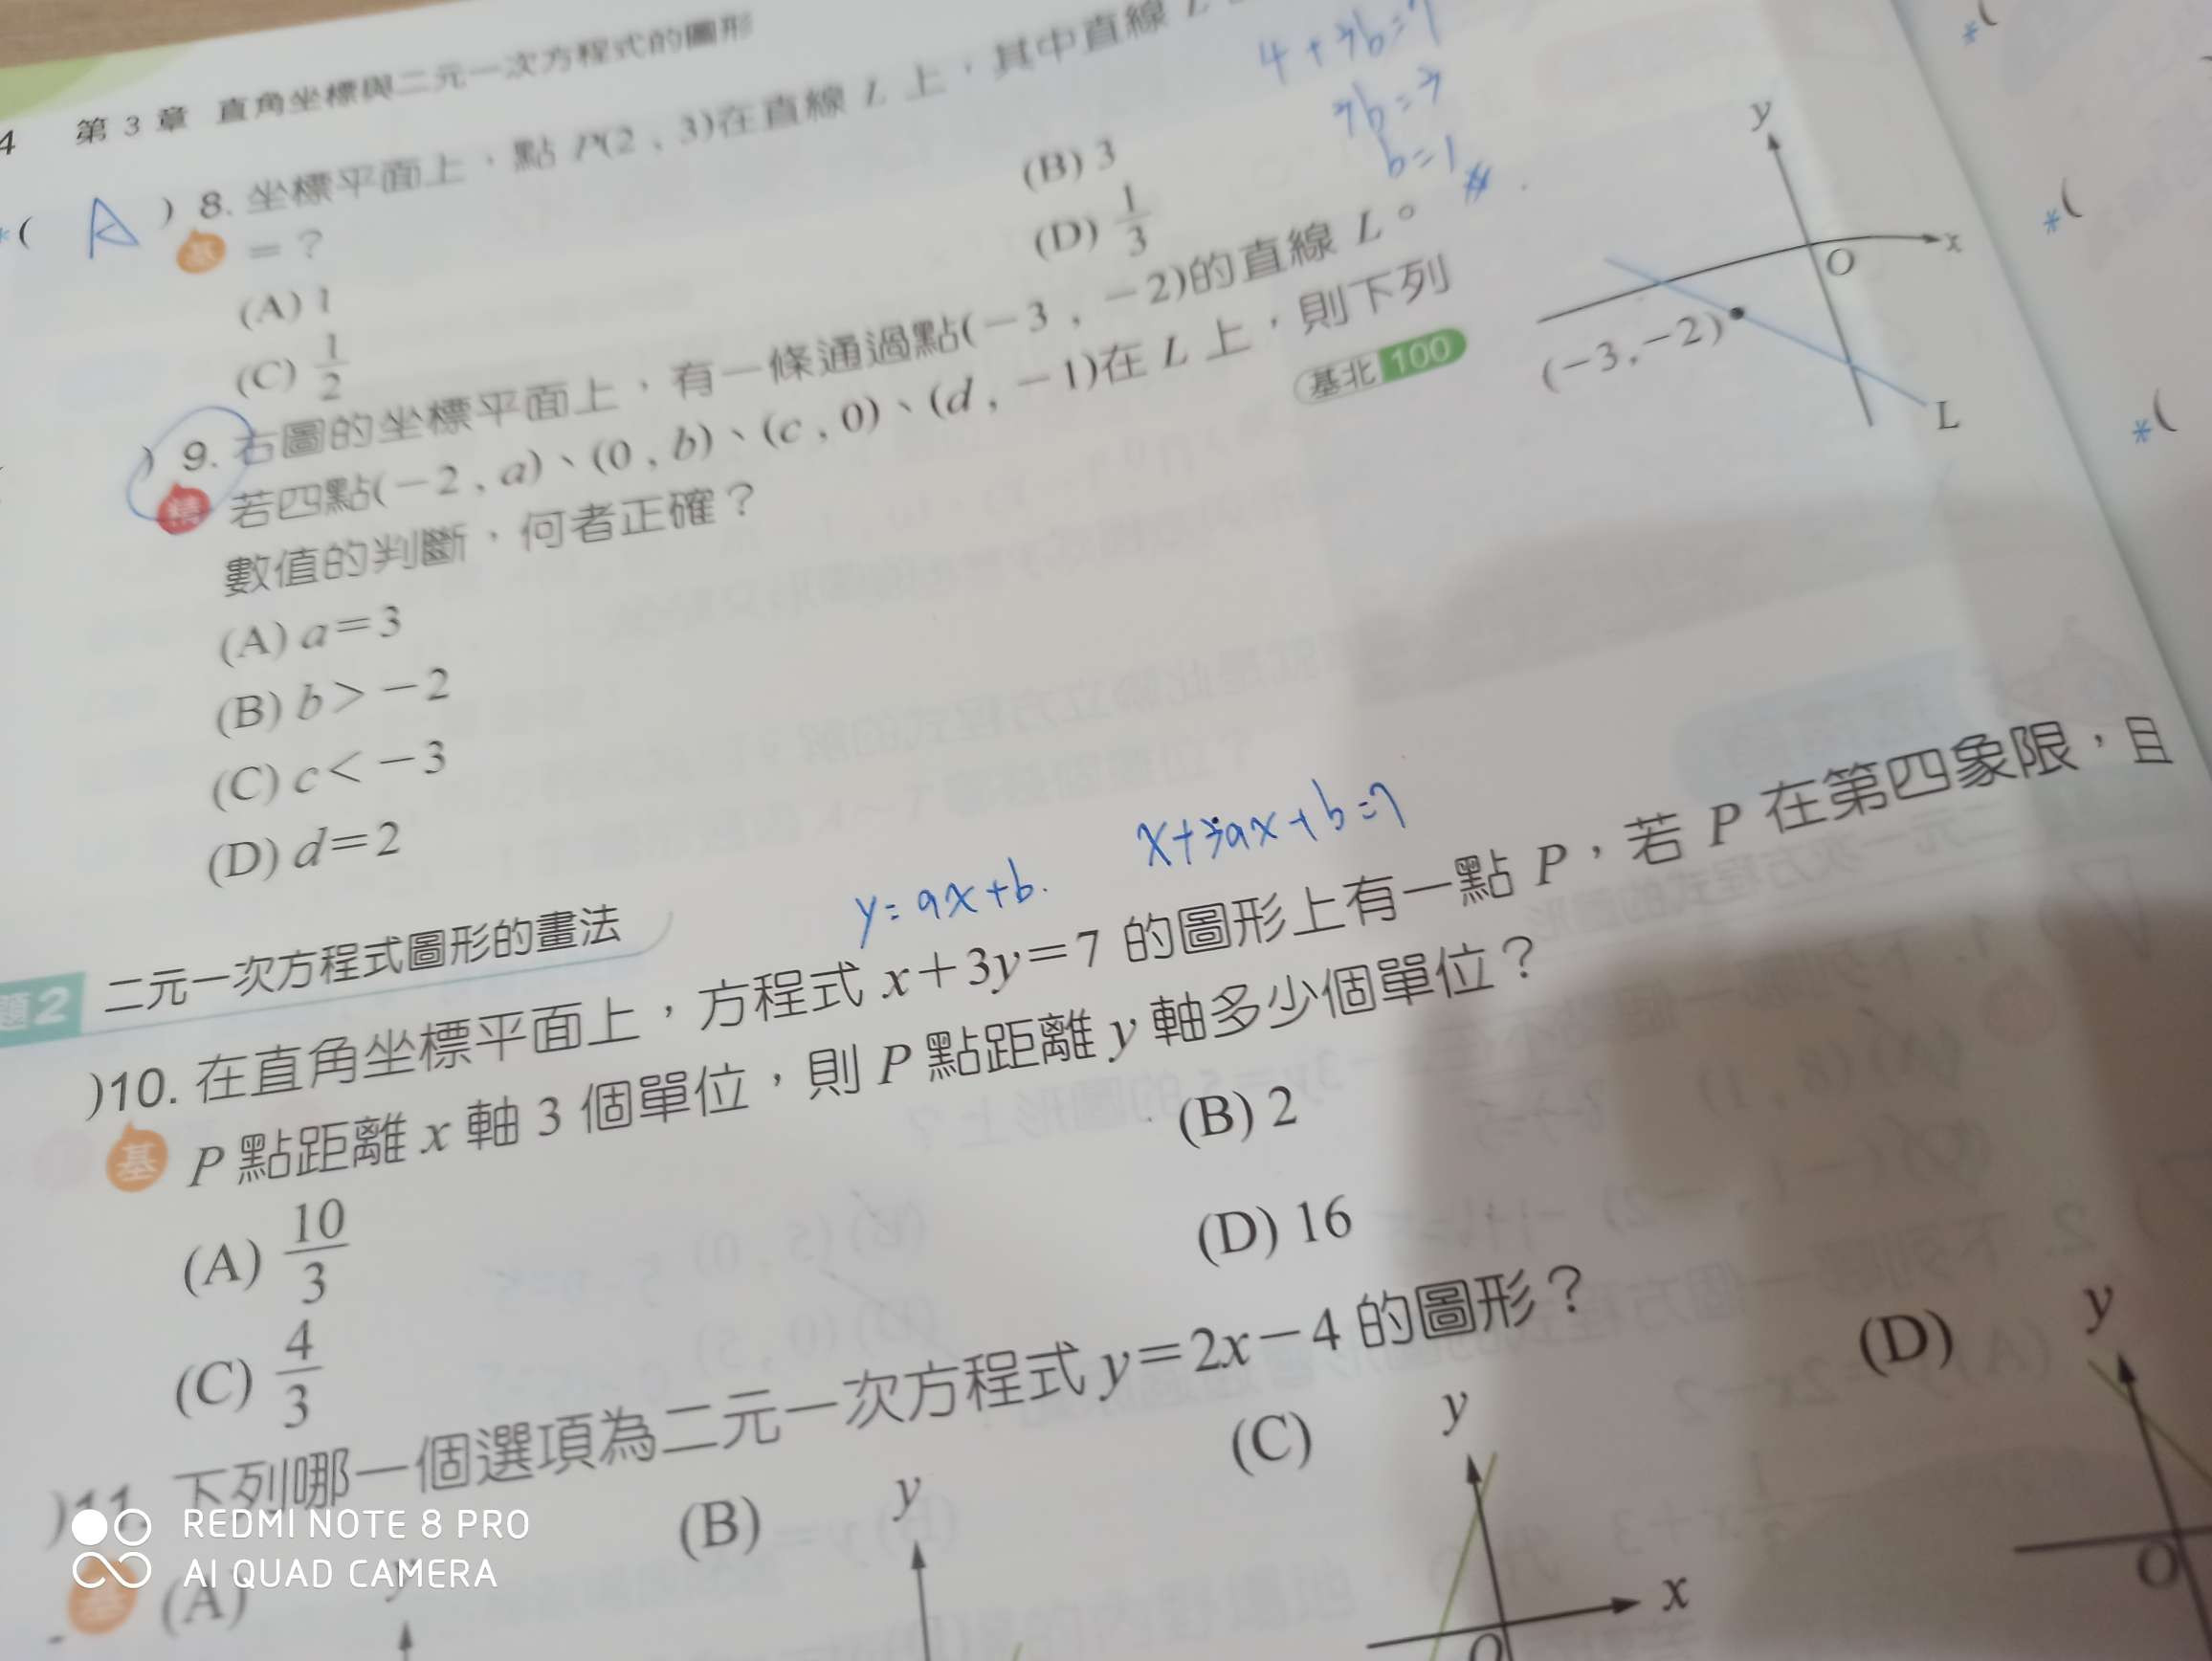 4 第 3 章 直角坐標與二元一次方程式的圖形
*( A ) 8. 坐標平面上，點 P(2，3)在直線 L 上，其中直線 L
基 ＝？
(A) 1
(B) 3
(C) 1/2
(D) 1/3
4+3b=7
3b=3
b=1
) 9. 右圖的坐標平面上，有一條通過點(－3，－2)的直線 L。
精 若四點(－2，a)、(0，b)、(c，0)、(d，－1)在 L 上，則下列
數值的判斷，何者正確？
基北 100
(A) a＝3
(B) b＞－2
(C) c＜－3
(D) d＝2
y
x
O
(－3,－2)
L
題2 二元一次方程式圖形的畫法
y=ax+b.
x+3ax+b=7
)10. 在直角坐標平面上，方程式 x＋3y＝7 的圖形上有一點 P，若 P 在第四象限，且
基 P 點距離 x 軸 3 個單位，則 P 點距離 y 軸多少個單位？
(A) 10/3
(B) 2
(C) 4/3
(D) 16
)11. 下列哪一個選項為二元一次方程式 y＝2x－4 的圖形？
基 (A)
y
(B)
y
(C)
y
x
O
(D)
y
O
*(
*(
*(
REDMI NOTE 8 PRO
AI QUAD CAMERA